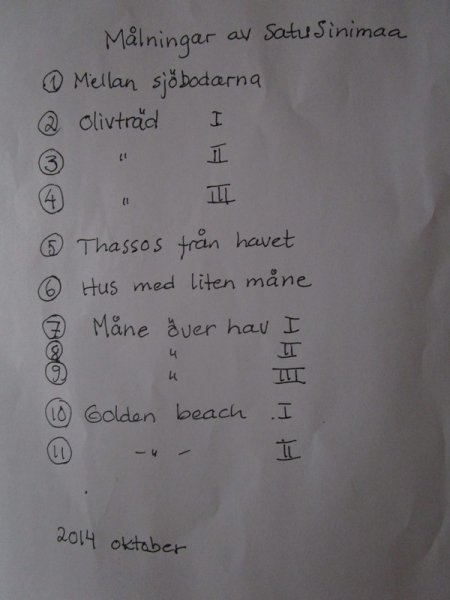 Målningar av Satu Sinimaa
① Mellan sjöbodarna
② Olivträd I
③ " II
④ " III
⑤ Thassos från havet
⑥ Hus med liten måne
⑦ Måne över hav I
⑧ " II
⑨ " III
⑩ Golden beach . I
⑪ - " - II
2014 oktober